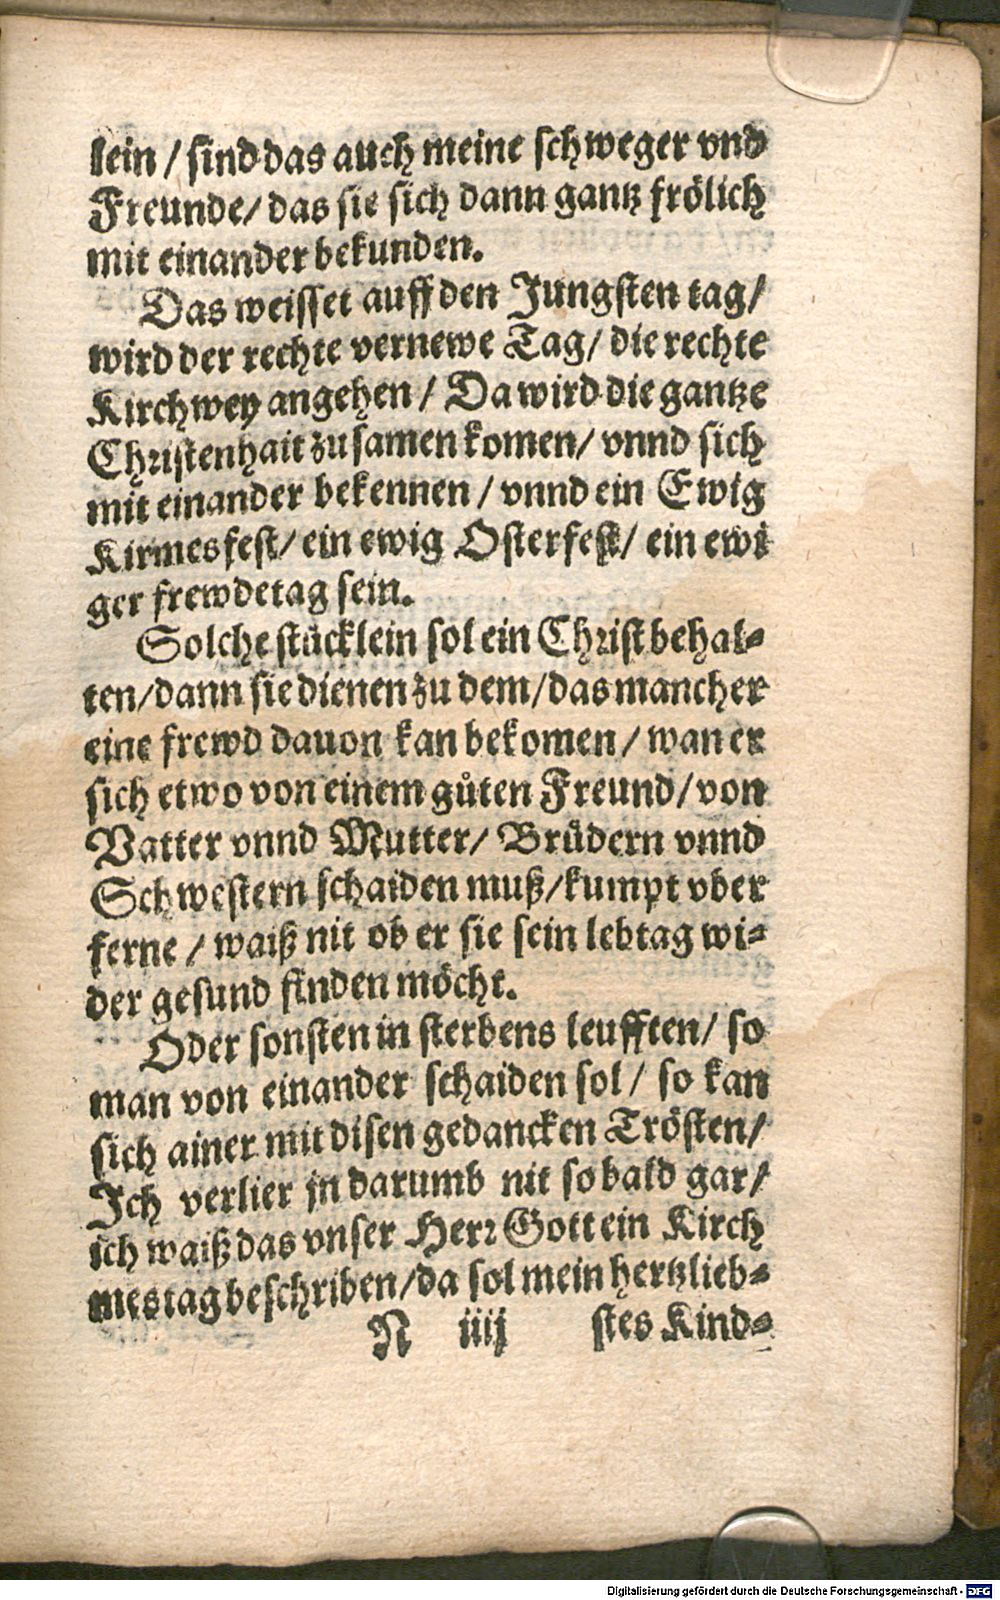 lein / sind das auch meine schweger vnd
Freunde / das sie sich dann gantz frölich
mit einander bekunden.
Das weisset auff den Jungsten tag /
wird der rechte vernewe Tag / die rechte
Kirchwey angehen / Da wird die gantze
Christenhait zusamen komen / vnnd sich
mit einander bekennen / vnnd ein Ewig
Kirmesfest / ein ewig Osterfest / ein ewi
ger frewdetag sein.
Solche stücklein sol ein Christ behal⸗
ten / dann sie dienen zu dem / das mancher
eine frewd dauon kan bekomen / wan er
sich etwo von einem gůten Freund / von
Vatter vnnd Mutter / Brůdern vnnd
Schwestern schaiden muß / kumpt vber
ferne / waiß nit ob er sie sein lebtag wi⸗
der gesund finden möcht.
Oder sonsten in sterbens leufften / so
man von einander schaiden sol / so kan
sich ainer mit disen gedancken Trösten /
Ich verlier jn darumb nit so bald gar /
ich waiß das vnser Herr Gott ein Kirch
mestag beschriben / da sol mein hertzlieb⸗
N iiij stes Kind⸗
Digitalisierung gefördert durch die Deutsche Forschungsgemeinschaft - DFG